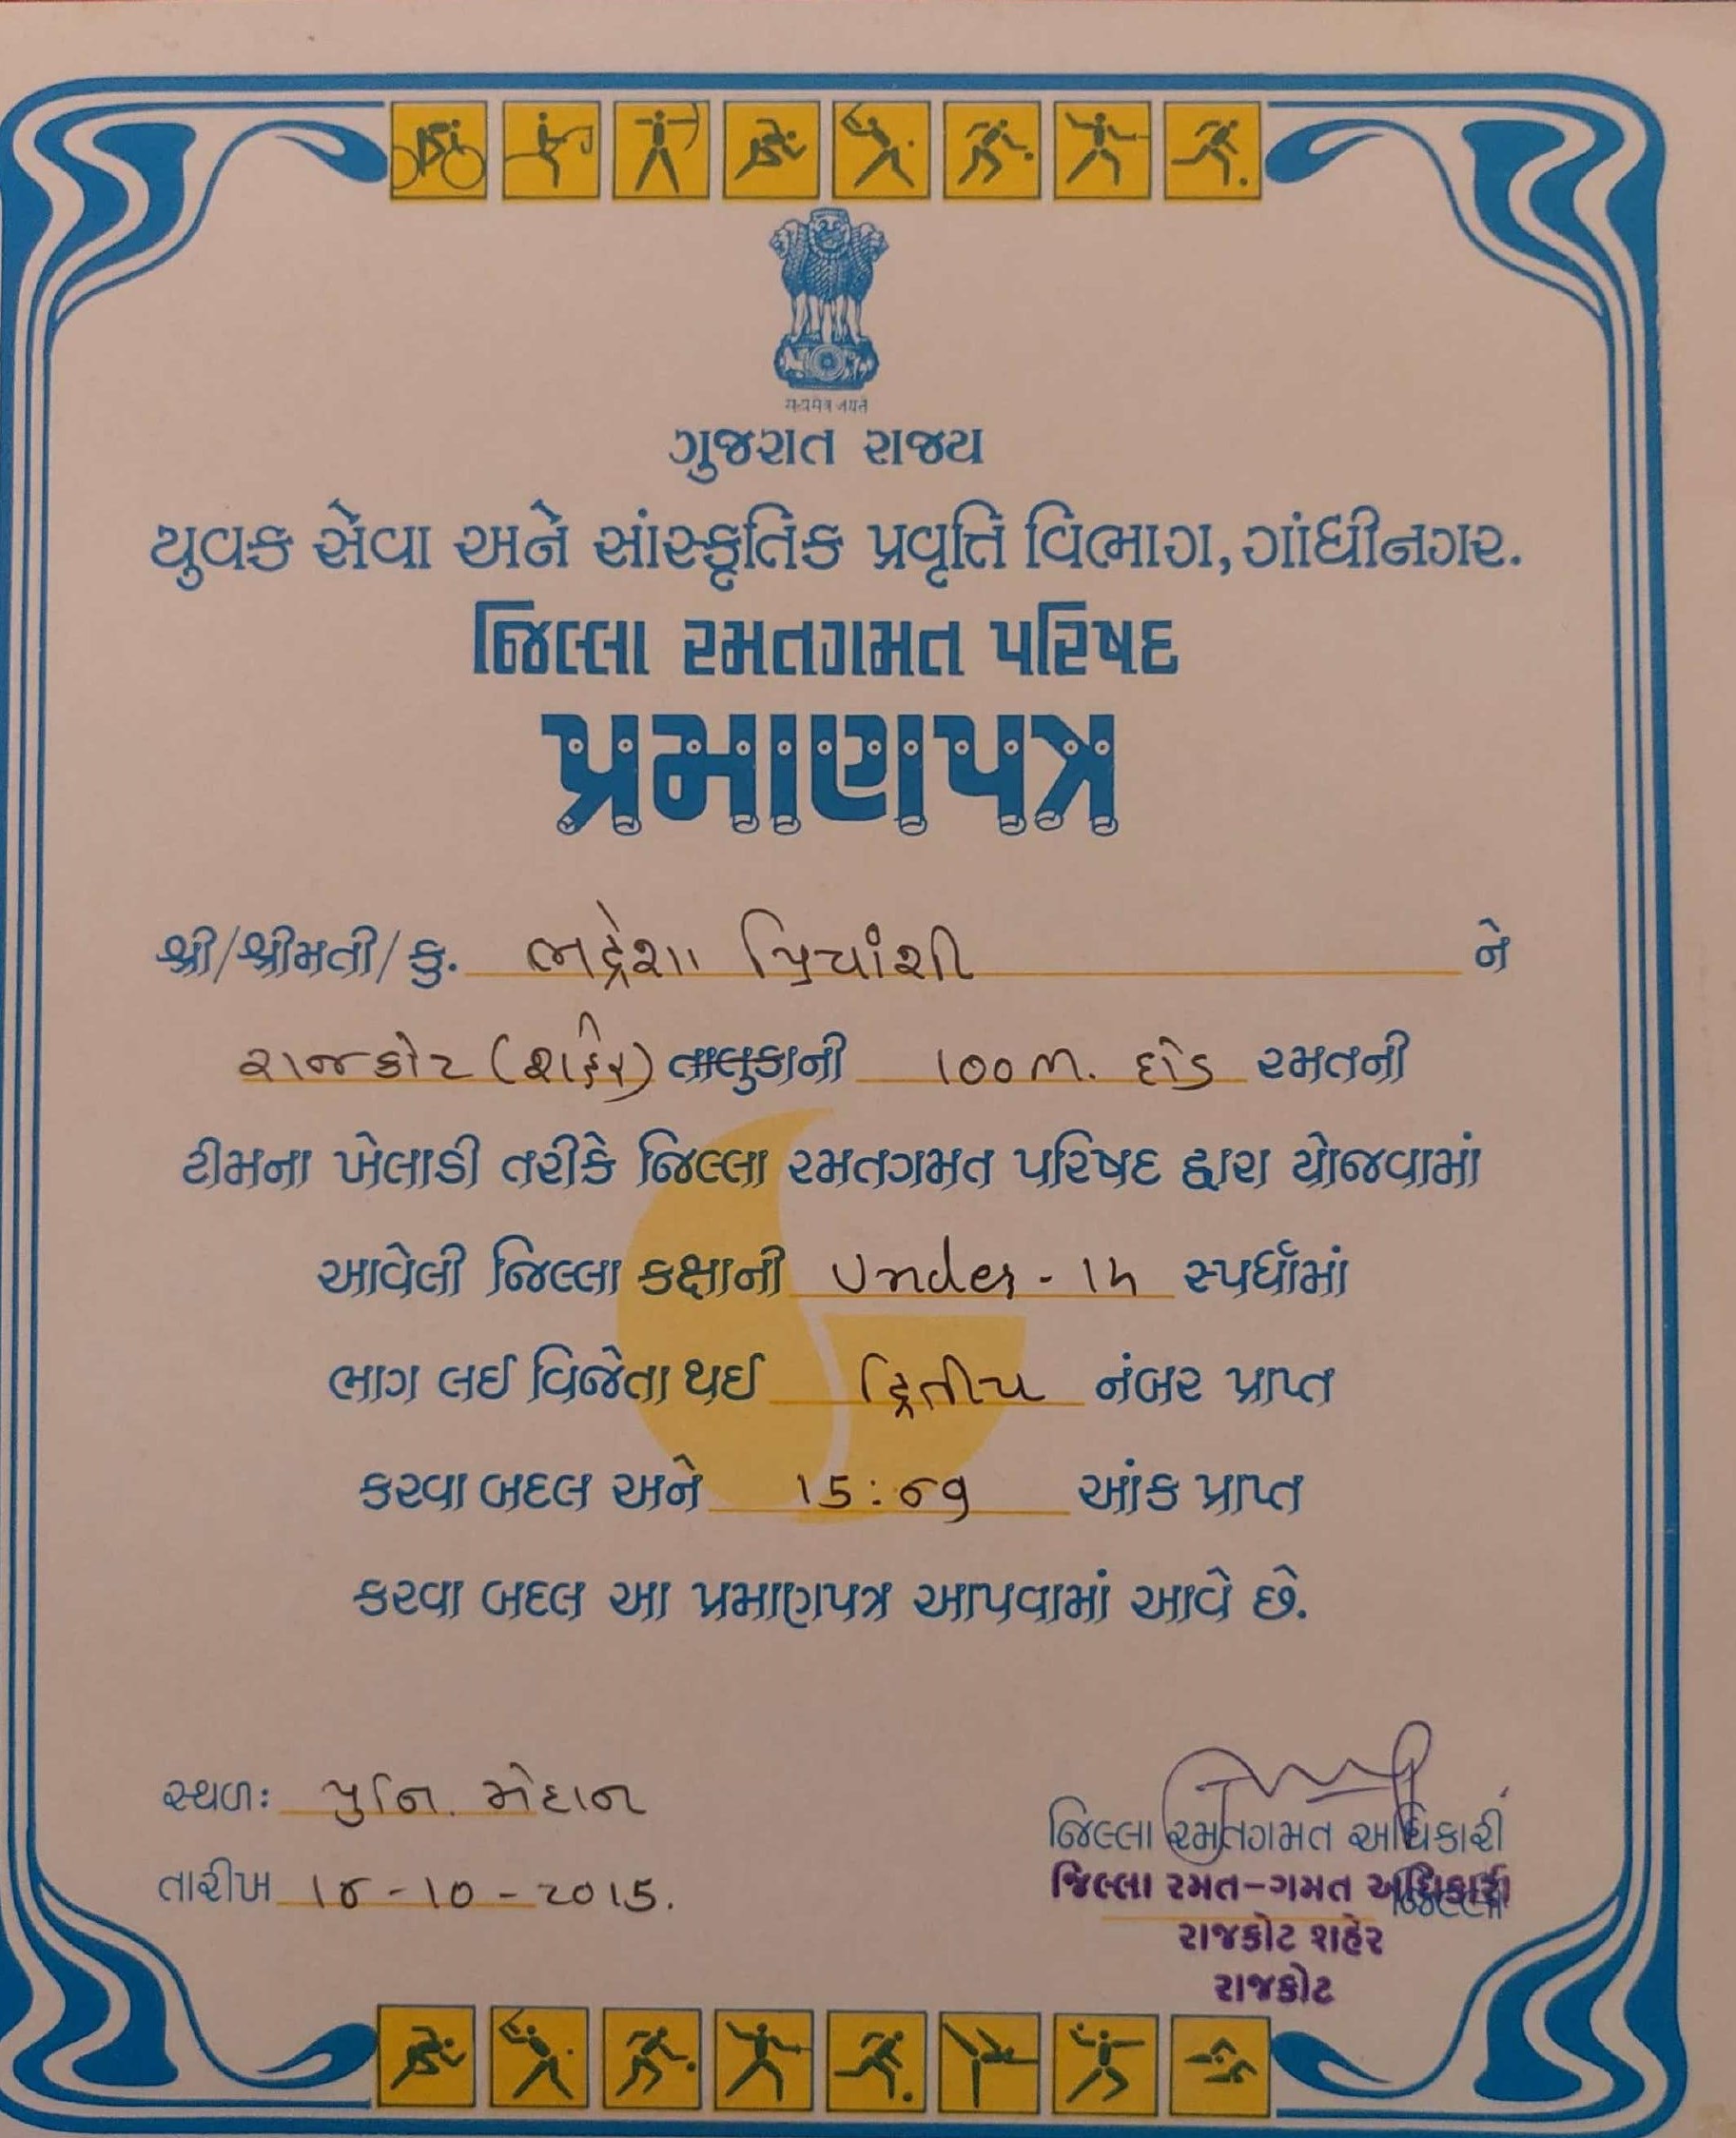 सत्यमेव जयते
ગુજરાત રાજ્ય
યુવક સેવા અને સાંસ્કૃતિક પ્રવૃત્તિ વિભાગ, ગાંધીનગર.
જિલ્લા રમતગમત પરિષદ
પ્રમાણપત્ર
શ્રી/શ્રીમતી/કુ. ભદ્રેશા પ્રિયાંશી ને
રાજકોટ (શહેર) તાલુકાની 100 m. દોડ રમતની
ટીમના ખેલાડી તરીકે જિલ્લા રમતગમત પરિષદ દ્વારા યોજવામાં
આવેલી જિલ્લા કક્ષાની Under - 14 સ્પર્ધામાં
ભાગ લઈ વિજેતા થઈ દ્વિતીય નંબર પ્રાપ્ત
કરવા બદલ અને 15:69 આંક પ્રાપ્ત
કરવા બદલ આ પ્રમાણપત્ર આપવામાં આવે છે.
સ્થળઃ યુનિ. મેદાન
તારીખ 18-10-2015.
જિલ્લા રમતગમત અધિકારી
જિલ્લા રમત-ગમત અધિકારી
જિલ્લા
રાજકોટ શહેર
રાજકોટ